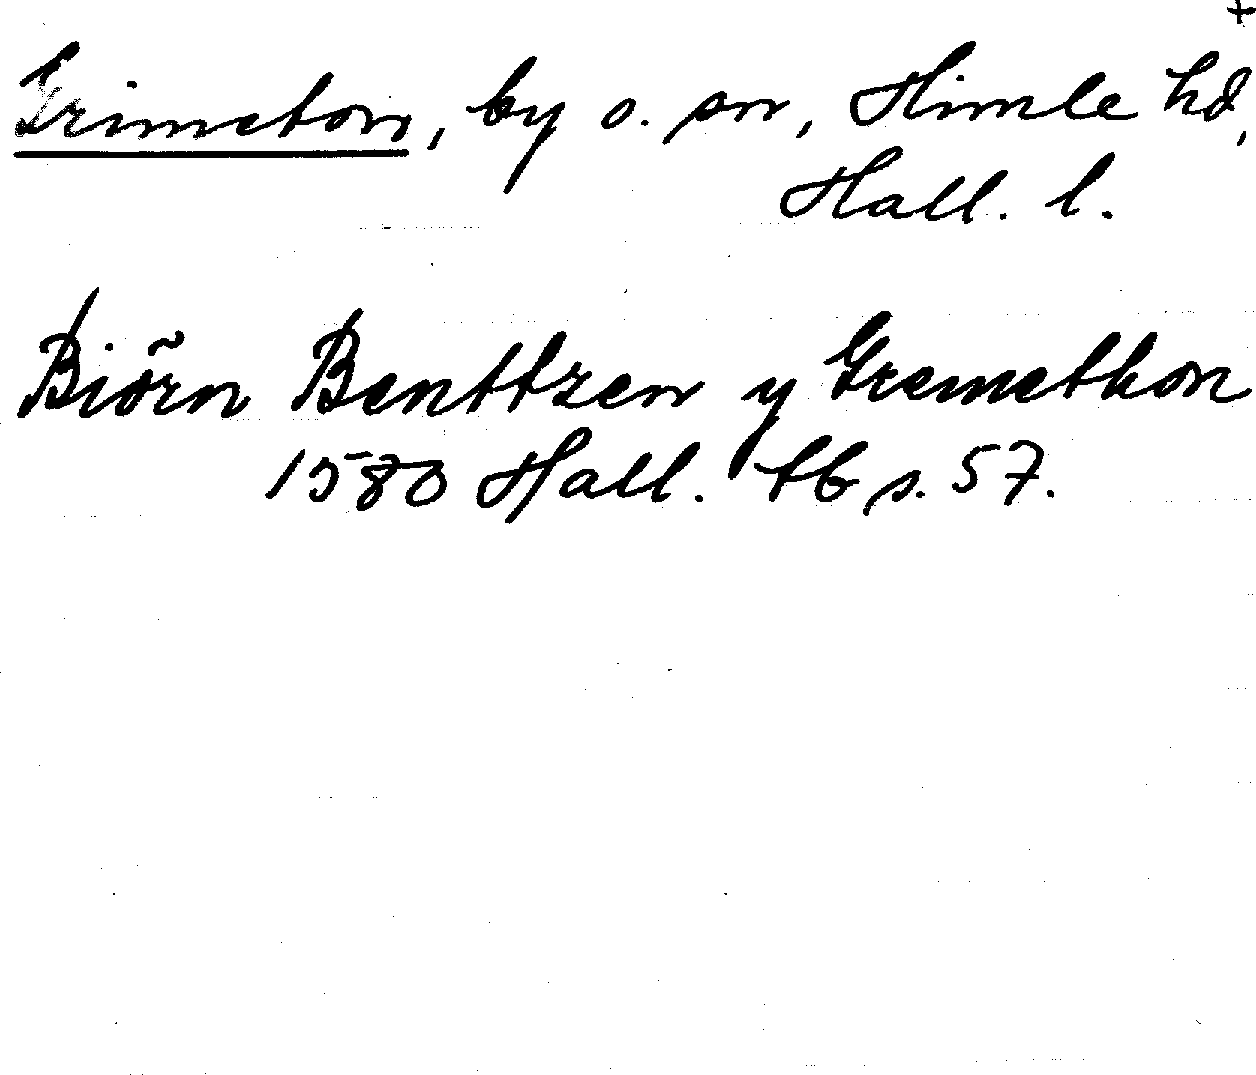 +
Grimeton, by o. sn, Himle hd,
Hall. l.
Biõrn Benttzen y Gremethon
1580 Hall. tb s. 57.